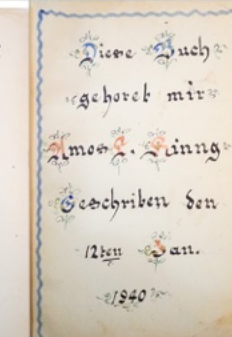 Diese Buch
gehoret mir
Amos J.
Geschriben den
12ten Jan.
1940